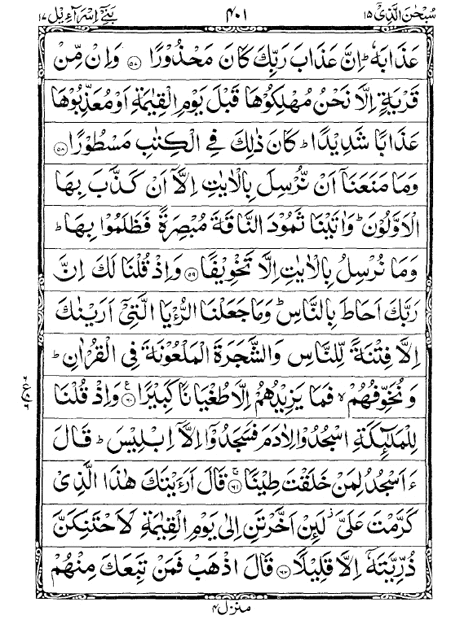 سُبْحٰنَ الَّذِیْۤ ۱۵ ۴۰۱ بَنِیْۤ اِسْرَآءِیْل ۱۷
عَذَابَهٗ ؕ اِنَّ عَذَابَ رَبِّكَ كَانَ مَحْذُوْرًا ﴿۵۷﴾ وَ اِنْ مِّنْ
قَرْیَةٍ اِلَّا نَحْنُ مُهْلِكُوْهَا قَبْلَ یَوْمِ الْقِیٰمَةِ اَوْ مُعَذِّبُوْهَا
عَذَابًا شَدِیْدًا ؕ كَانَ ذٰلِكَ فِی الْكِتٰبِ مَسْطُوْرًا ﴿۵۸﴾
وَمَا مَنَعَنَاۤ اَنْ نُّرْسِلَ بِالْاٰیٰتِ اِلَّاۤ اَنْ كَذَّبَ بِهَا
الْاَوَّلُوْنَ ؕ وَ اٰتَیْنَا ثَمُوْدَ النَّاقَةَ مُبْصِرَةً فَظَلَمُوْا بِهَا ؕ
وَمَا نُرْسِلُ بِالْاٰیٰتِ اِلَّا تَخْوِیْفًا ﴿۵۹﴾ وَ اِذْ قُلْنَا لَكَ اِنَّ
رَبَّكَ اَحَاطَ بِالنَّاسِ ؕ وَمَا جَعَلْنَا الرُّءْیَا الَّتِیْۤ اَرَیْنٰكَ
اِلَّا فِتْنَةً لِّلنَّاسِ وَ الشَّجَرَةَ الْمَلْعُوْنَةَ فِی الْقُرْاٰنِ ؕ
وَ نُخَوِّفُهُمْ ۙ فَمَا یَزِیْدُهُمْ اِلَّا طُغْیَانًا كَبِیْرًا ﴿۶۰﴾ وَ اِذْ قُلْنَا
لِلْمَلٰٓىِٕكَةِ اسْجُدُوْا لِاٰدَمَ فَسَجَدُوْۤا اِلَّاۤ اِبْلِیْسَ ؕ قَالَ
ءَاَسْجُدُ لِمَنْ خَلَقْتَ طِیْنًا ﴿۶۱﴾ قَالَ اَرَءَیْتَكَ هٰذَا الَّذِیْ
كَرَّمْتَ عَلَیَّ ؗ لَىِٕنْ اَخَّرْتَنِ اِلٰی یَوْمِ الْقِیٰمَةِ لَاَحْتَنِكَنَّ
ذُرِّیَّتَهٗۤ اِلَّا قَلِیْلًا ﴿۶۲﴾ قَالَ اذْهَبْ فَمَنْ تَبِعَكَ مِنْهُمْ
منزل ۴